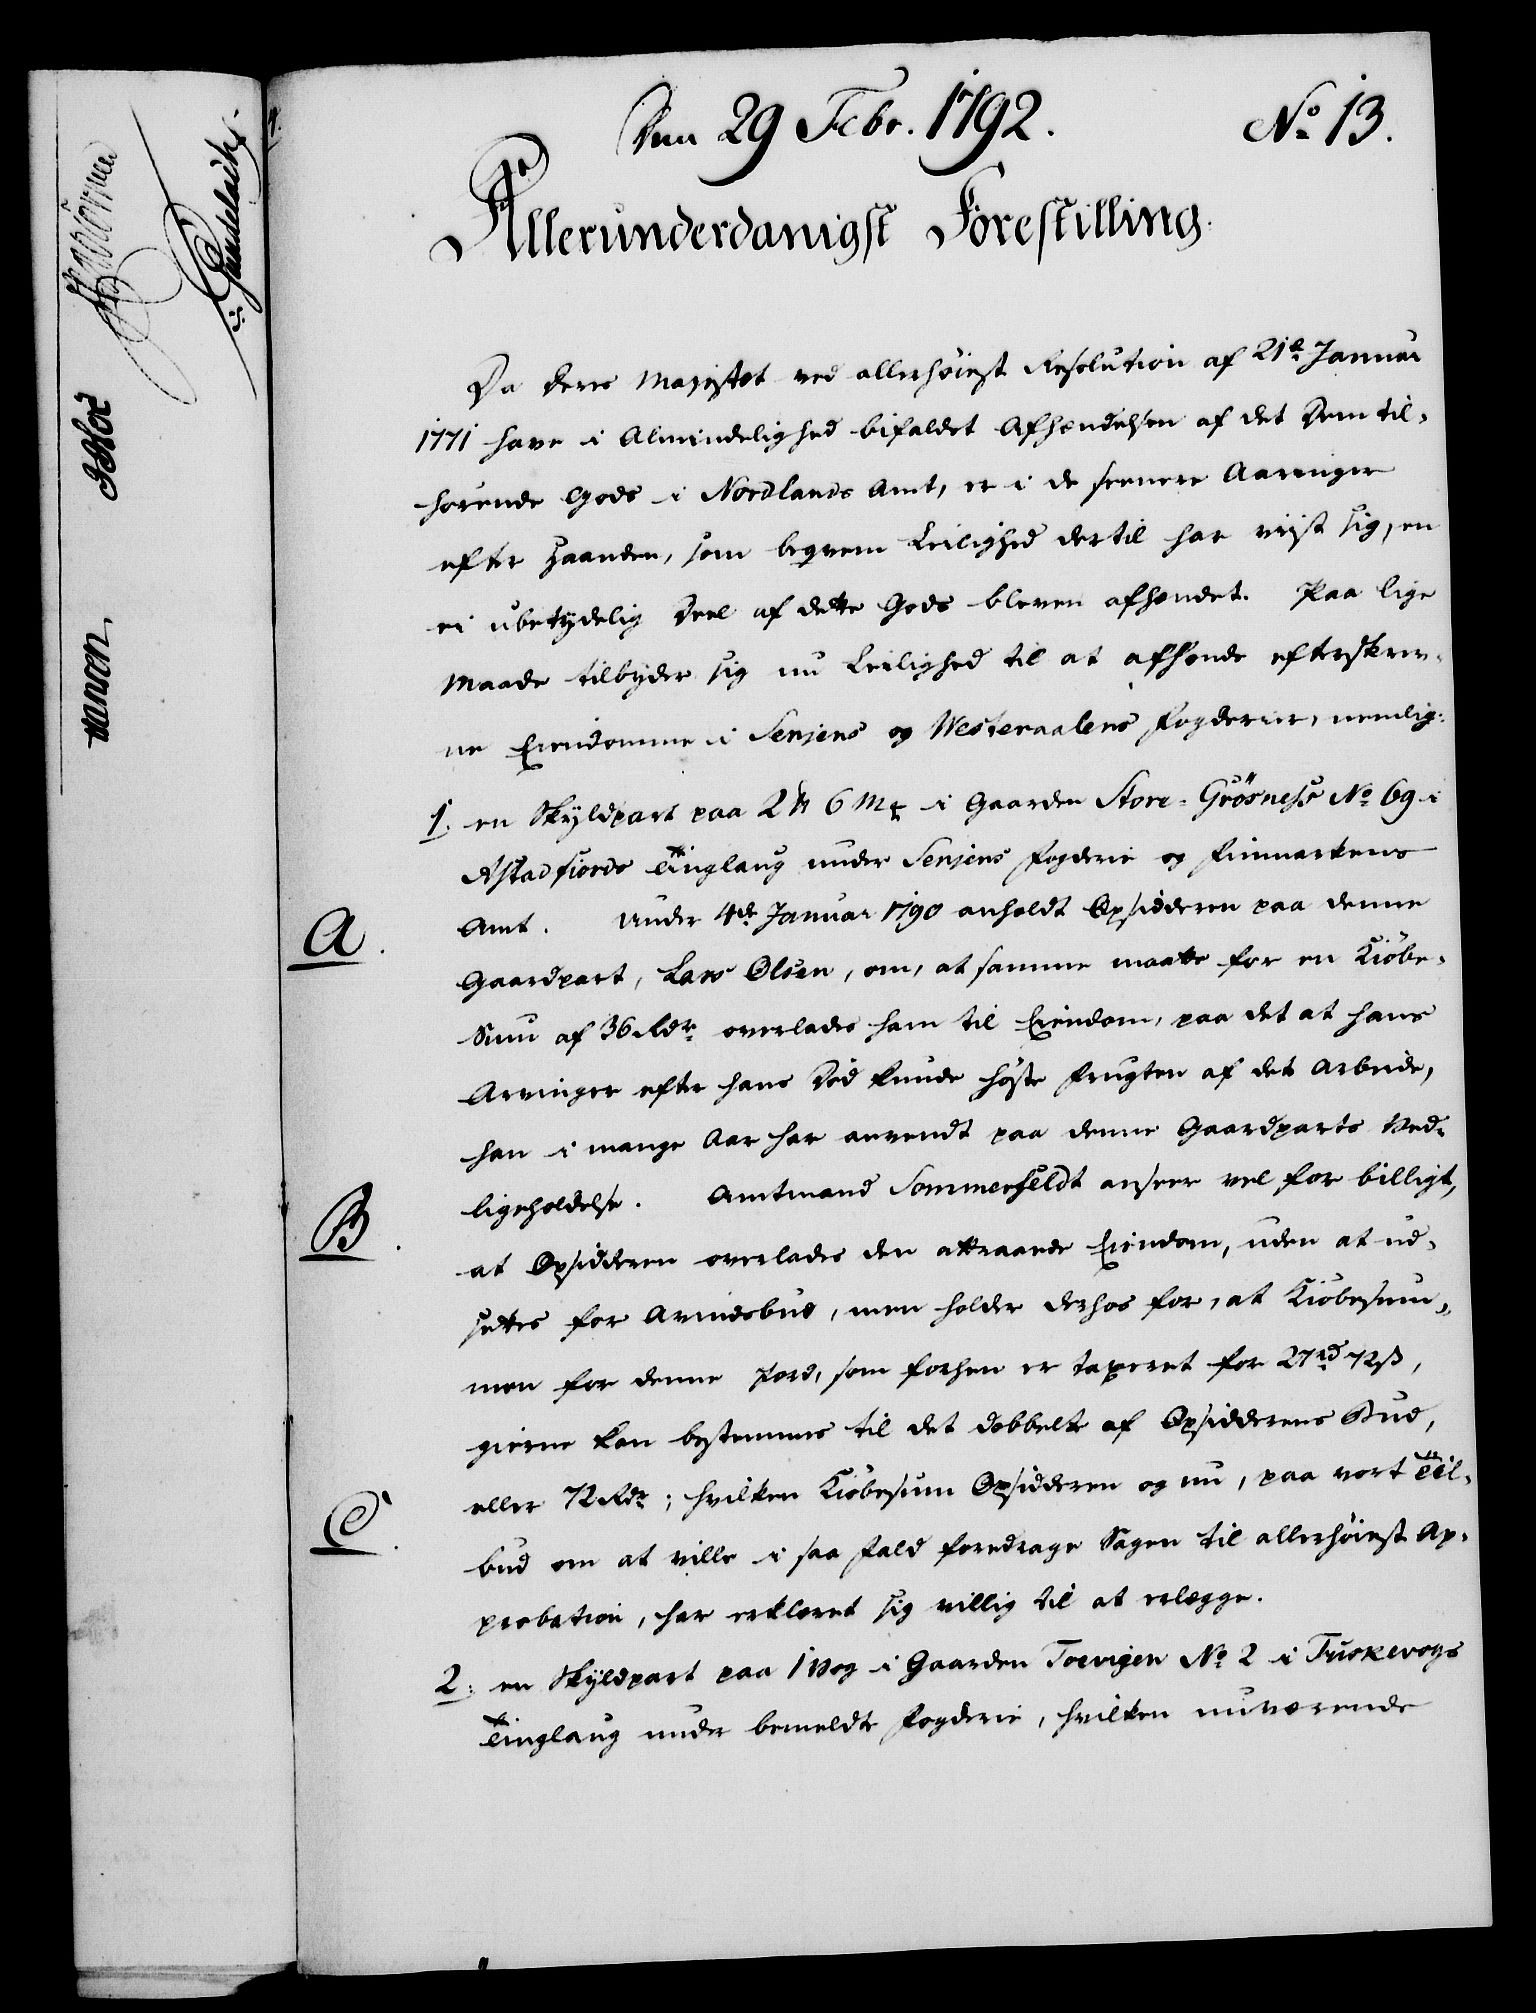 Den 29 Febr. 1792.
No 13.
Allerunderdanigst Forestilling.
Da Deres Majestet ved allerhöiest Resolution af 21de Januar
1771 have i Almindelighed bifaldet Afhændelsen af det Dem til-
hørende Gods i Nordlands Amt, er i de seenere Aaringer
efter Haanden, som beqvem Leilighed dertil har viist sig, en
ei ubetydelig Deel af dette Gods bleven afhændet. Paa lige
Maade tilbyder sig nu Leilighed til at afhænde efterskrev-
ne Eiendomme i Senjens og Westeraalens Fogderier, nemlig:
1. en Skyldpart paa 2 6 Mk i Gaarden Store-Grösness No 69 i
Astadfiords Tinglaug under Senjens Fogderie og Finmarkens
Amt. Under 4de Januar 1790 anholdt Opsidderen paa denne
A.
Gaardpart, Lars Olsen, om, at samme maatte for en Kiöbe-
Sum af 36 Rdr overlades ham til Eiendom, paa det at hans
Arvinger efter hans Död kunde høste Frugten af det Arbeide,
han i mange Aar har anvendt paa denne Gaardparts Ved-
ligeholdelse. Amtmand Sommerfeldt anseer vel for billigt,
B.
at Opsidderen overlades den attraaede Eiendom, uden at ud-
sættes for Avindsbud, men holder derhos for, at Kiöbesum-
men for denne Jord, som forhen er taxeret for 27rd 72ß,
gierne kan bestemmes til det dobbelte af Opsidderens Bud,
eller 72 Rdr; hvilken Kiöbesum Opsidderen og nu, paa vort Til-
C.
bud om at ville i saa Fald foredrage Sagen til allerhöiest Ap-
probation, har erklæret sig villig til at erlægge.
2. en Skyldpart paa 1 Vog i Gaarden Toevigen No 2 i Tuskevogs
Tinglaug under bemeldte Fogderie, hvilken nuværende